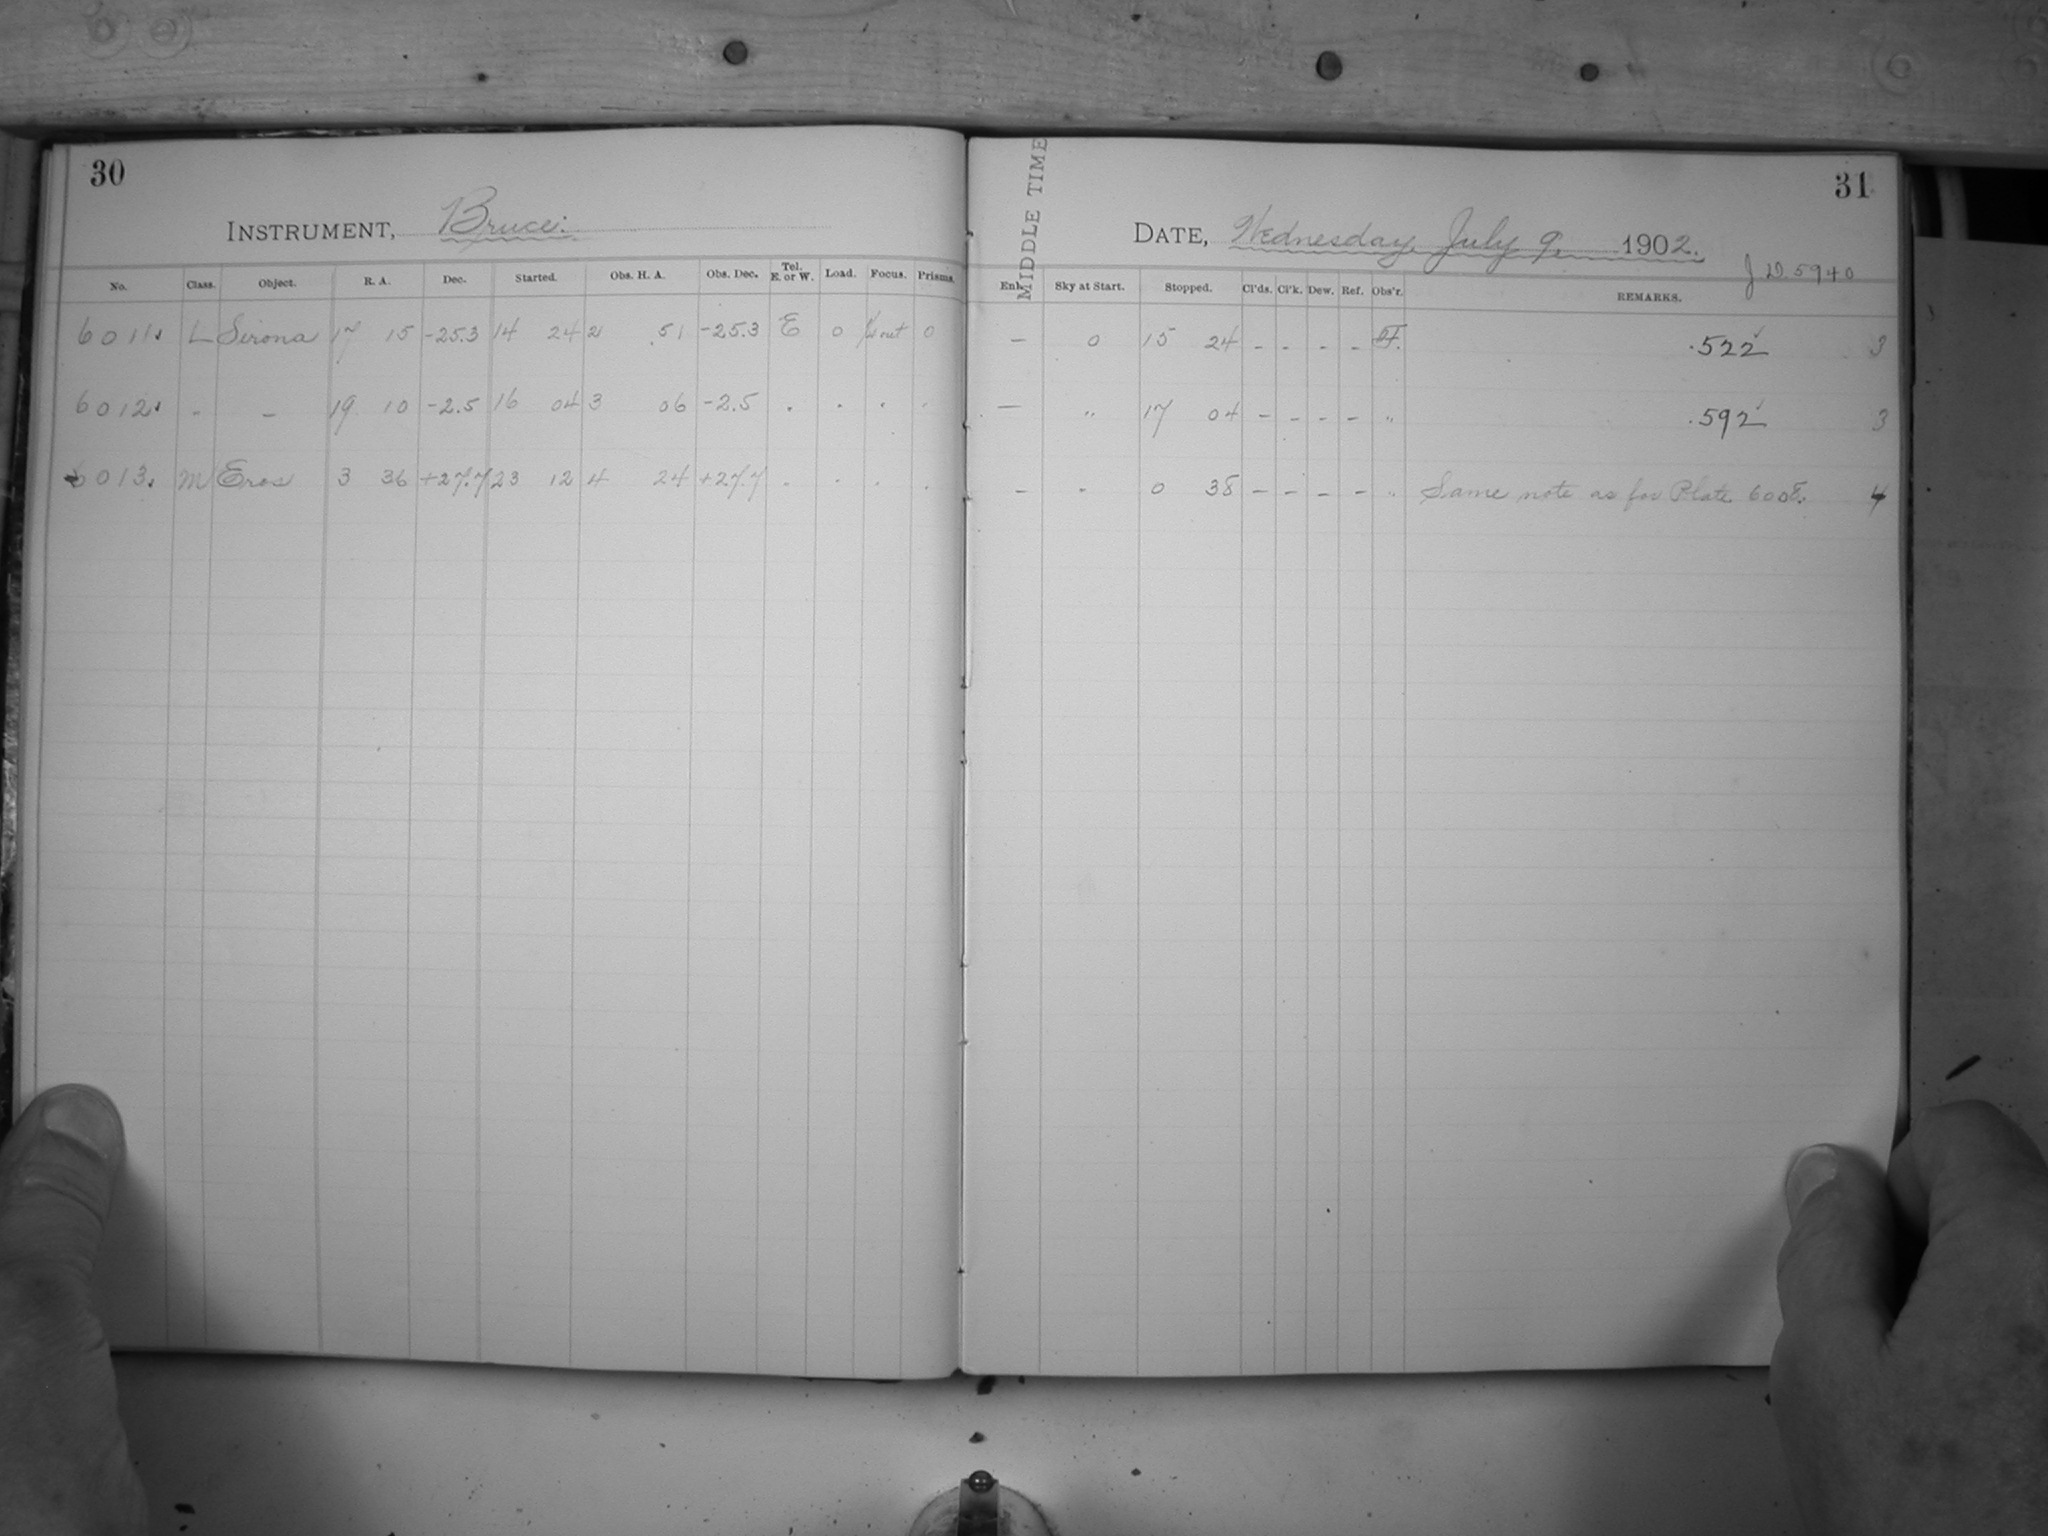 30
INSTRUMENT, Bruce.
No. Class. Object. R. A. Dec. Started. Obs. H. A. Obs. Dec. Tel. E. or W. Load. Focus. Prisms.
6011. L Sirona 17 15 -25.3 14 24 2 51 -25.3 E 0 out 0
6012. - - 19 10 -2.5 16 04 3 06 -2.5 . . . .
6013. M Eros 3 36 +27.7 23 12 4 24 +27.7 . . . .
31
MIDDLE TIME
DATE, Wednesday, July 9, 1902.
J D 5940
Enl. Sky at Start. Stopped. Cl'ds. Cl'k. Dew. Ref. Obs'r. REMARKS.
— 0 15 24 - - - - .522 3
— " 17 04 - - - - " .592 3
- - 0 38 - - - - " Same note as for Plate 6008. 4